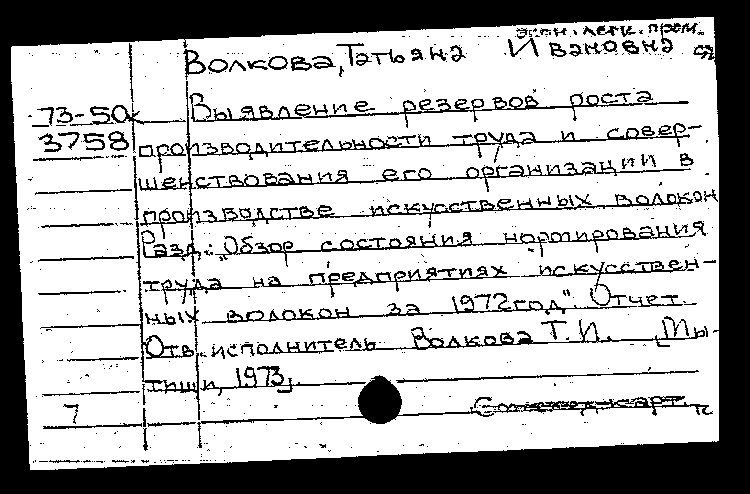 экон. легк. пром.
Волкова, Татьяна Ивановна
73-50к Выявление резервов роста
3758 производительности труда и совер-
шенствования его организации в
производстве искусственных волокон
Разд.: „Обзор состояния нормирования
труда на предприятиях искусствен-
ных волокон за 1972 год". Отчет.
Отв. исполнитель Волкова Т.И. [Мы-
тищи, 1973].
7